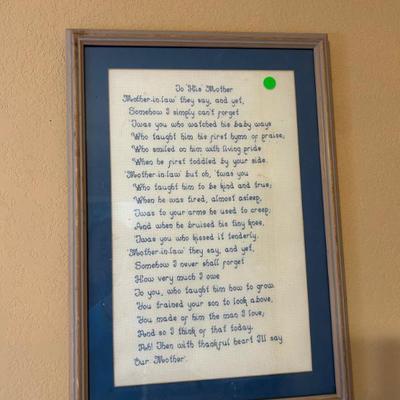 To "His" Mother
"Mother-in-law" they say, and yet,
Somehow I simply can't forget
'Twas you who watched his baby ways
Who taught him his first hymn of praise,
Who smiled on him with loving pride
When he first toddled by your side.
"Mother-in-law" but oh, 'twas you
Who taught him to be kind and true;
When he was tired, almost asleep,
'Twas to your arms he used to creep;
And when he bruised his tiny knee,
'Twas you who kissed it tenderly.
"Mother-in-law" they say, and yet,
Somehow I never shall forget
How very much I owe
To you, who taught him how to grow.
You trained your son to look above,
You made of him the man I love;
And so I think of that today.
Ah! Then with thankful heart I'll say
"Our Mother".